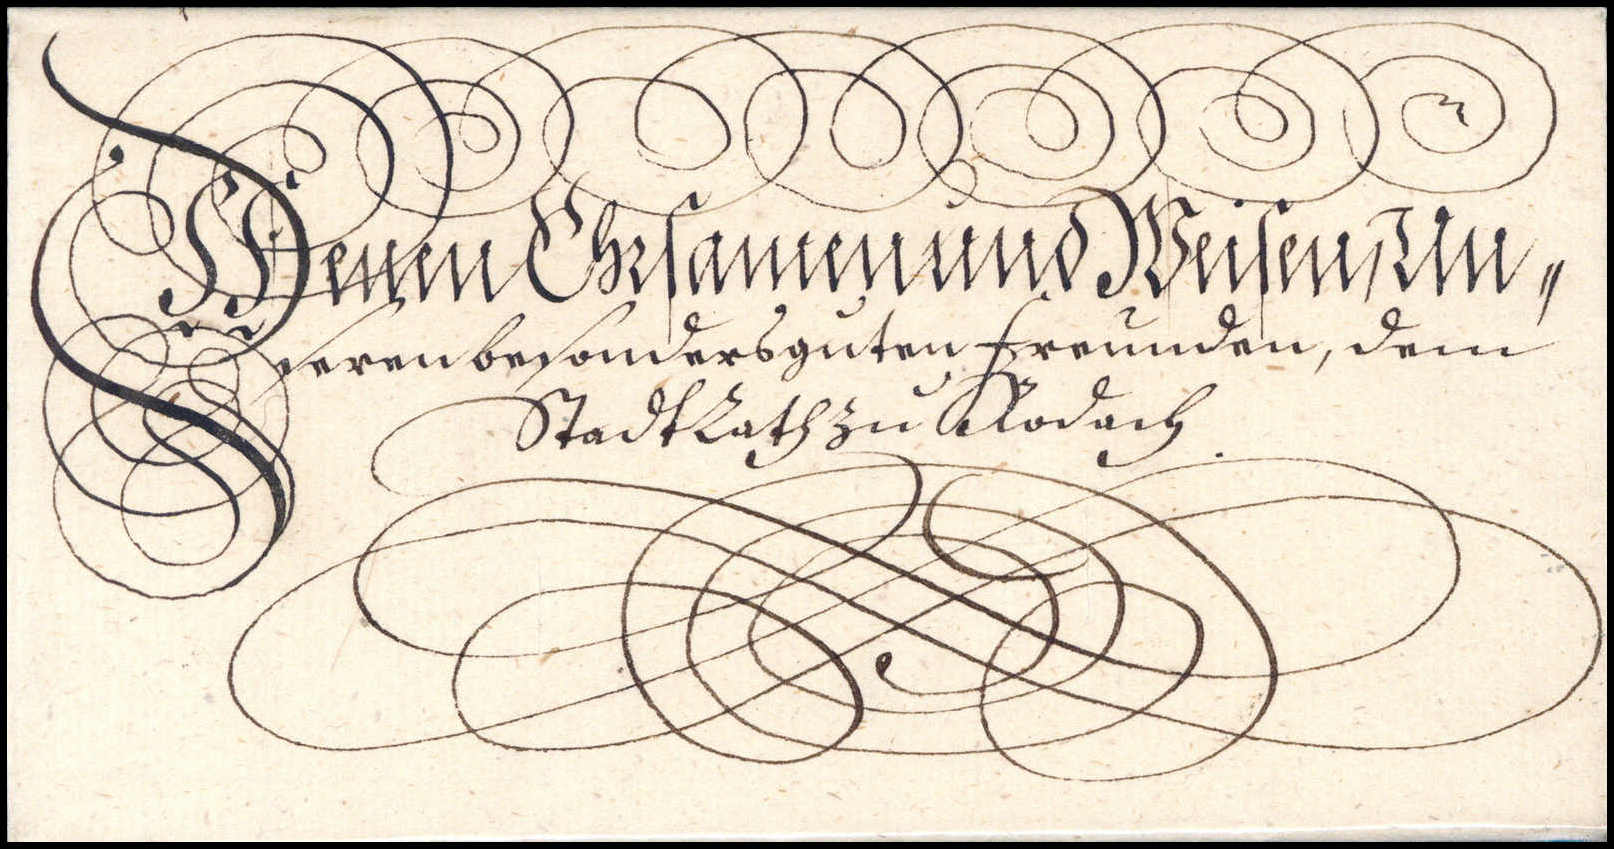 Denen Ehrsamen und Weisen, Un=
seren besonders guten Freunden, dem
Stadt Rath zu Rodach.